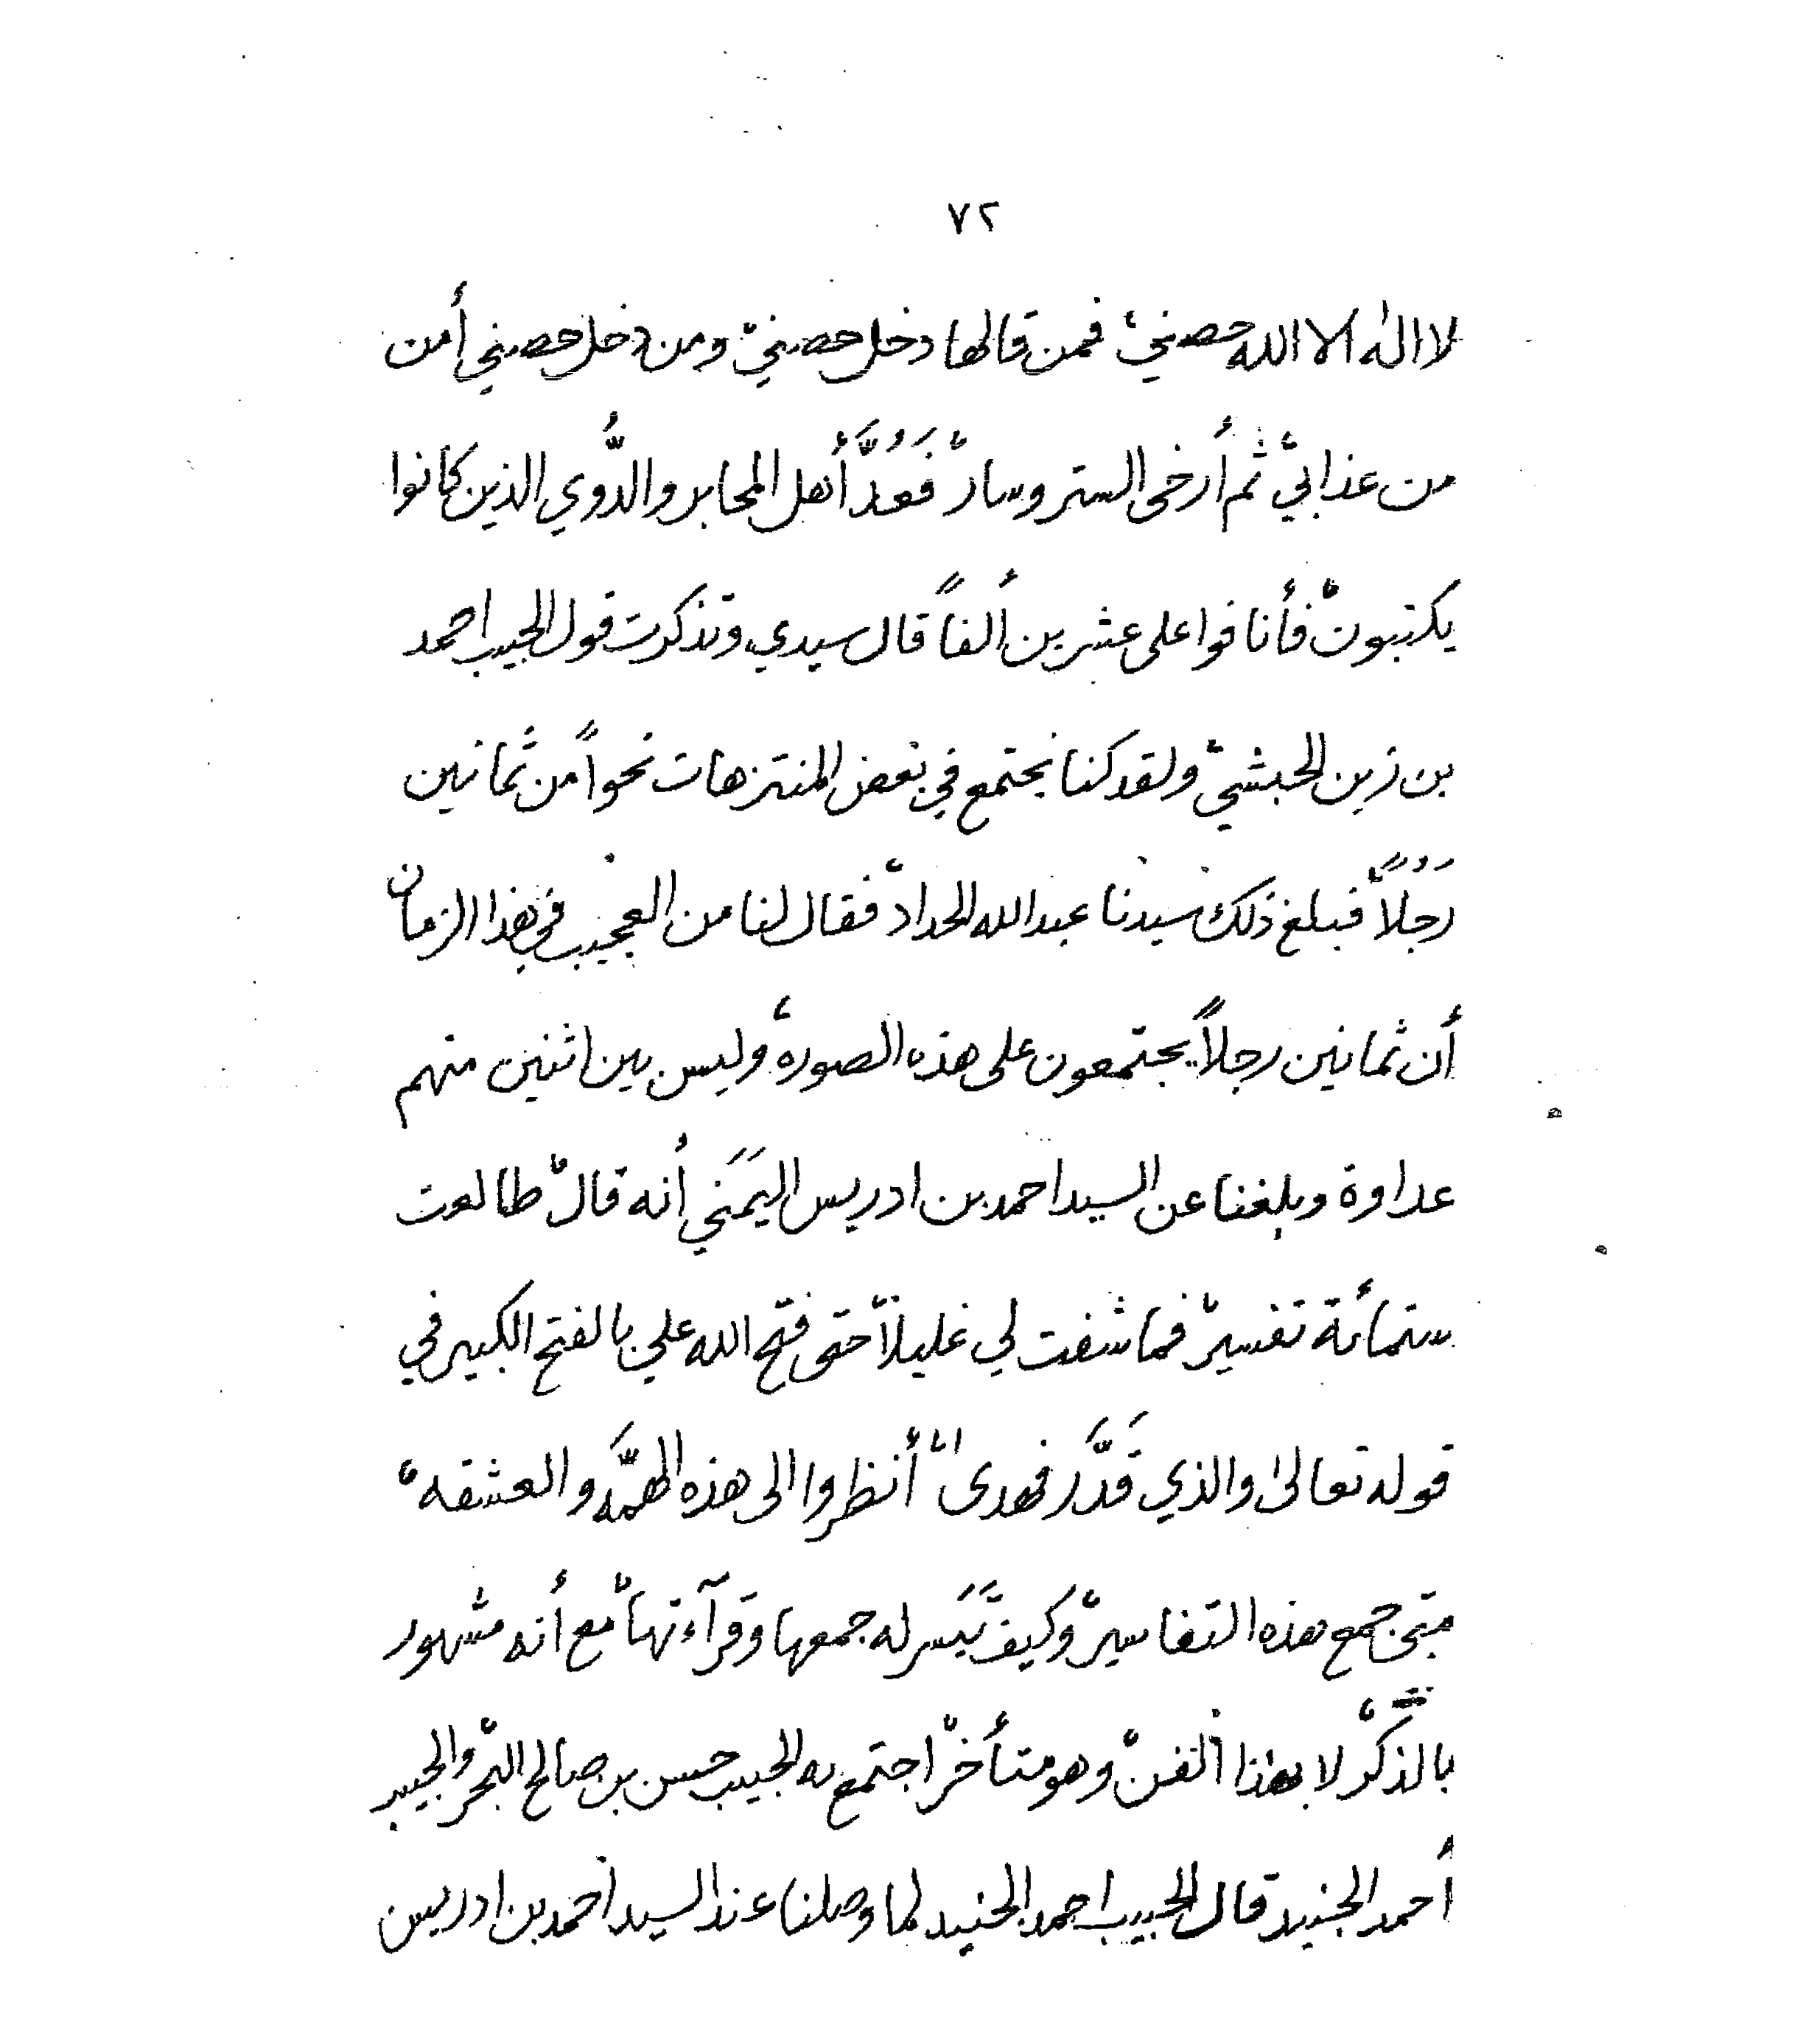 ٧٢
لا اله الا الله حصني، فمن قالها دخل حصني، ومن دخل حصني أمن
من عذابي، ثم أرخى الستر وسار، فَعُدَّ أهل المحابر والدُّوي الذين كانوا
يكتبون، فأنافوا على عشرين ألفاً قال سيدي وتذكرت قول الحبيب احمد
بن زين الحبشي، ولقد كنا نجتمع في بعض المنتزهات نحواً من ثمانين
رَجُلاً، فبلغ ذلك سيدنا عبدالله الحداد، فقال لنا من العجيب في هذا الزمان
أن ثمانين رجلاً يجتمعون على هذه الصوره، وليس بين اثنين منهم
عداوة وبلغنا عن السيد احمد بن ادريس اليَمَني أنه قال، طالعت
ستمائة تفسير، فما شفت لي غليلاً، حتى فتح الله علي بالفتح الكبير في
قوله تعالى والذي قَدَّر فهدى، أنظروا الى هذه الهمَّه والعشقه،
متى جمع هذه التفاسير، وكيف تَيَسر له جمعها وقرآءتها، مع أنه مشهور
بالذكر، لا بهذا الفن، وهو متأخر، اجتمع به الحبيب حسن بن صالح البحر، والحبيب
أحمد الجنيد قال الحبيب احمد الجنيد لما وصلنا عند السيد أحمد بن ادريس